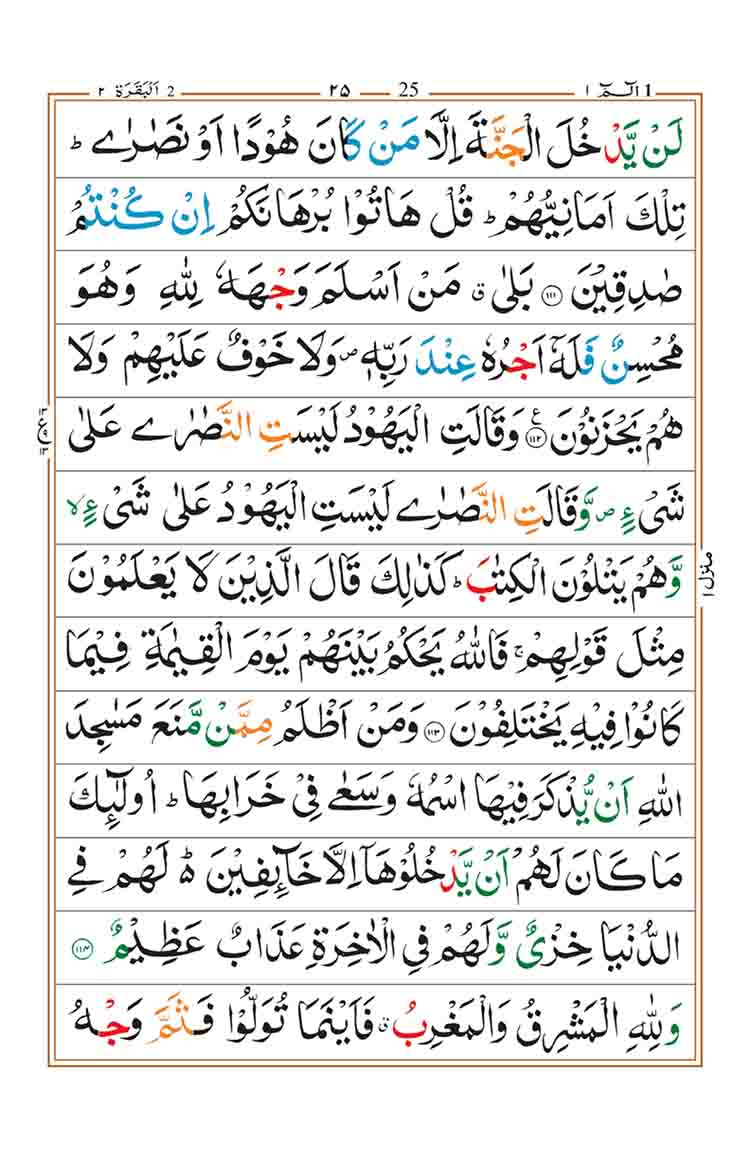 1 الٓـمّٓ ١ 25 ٢٥ 2 اَلْبَقَرَة ٢
لَنْ یَّدْخُلَ الْجَنَّةَ اِلَّا مَنْ كَانَ هُوْدًا اَوْ نَصٰرٰے ؕ
تِلْكَ اَمَانِیُّهُمْ ؕ قُلْ هَاتُوْا بُرْهَانَكُمْ اِنْ كُنْتُمْ
صٰدِقِیْنَ ۝۱۱۱ بَلٰی ۗ مَنْ اَسْلَمَ وَجْهَهٗ لِلّٰهِ وَهُوَ
مُحْسِنٌ فَلَهٗۤ اَجْرُهٗ عِنْدَ رَبِّهٖ ۪ وَلَا خَوْفٌ عَلَیْهِمْ وَلَا
هُمْ یَحْزَنُوْنَ ۝۱۱۲ ع وَقَالَتِ الْیَهُوْدُ لَیْسَتِ النَّصٰرٰے عَلٰی
شَیْءٍ ۪ وَّقَالَتِ النَّصٰرٰے لَیْسَتِ الْیَهُوْدُ عَلٰی شَیْءٍ ۙ
وَّهُمْ یَتْلُوْنَ الْكِتٰبَ ؕ كَذٰلِكَ قَالَ الَّذِیْنَ لَا یَعْلَمُوْنَ
مِثْلَ قَوْلِهِمْ ۚ فَاللّٰهُ یَحْكُمُ بَیْنَهُمْ یَوْمَ الْقِیٰمَةِ فِیْمَا
كَانُوْا فِیْهِ یَخْتَلِفُوْنَ ۝۱۱۳ وَمَنْ اَظْلَمُ مِمَّنْ مَّنَعَ مَسٰجِدَ
اللّٰهِ اَنْ یُّذْكَرَ فِیْهَا اسْمُهٗ وَسَعٰی فِیْ خَرَابِهَا ؕ اُولٰٓئِكَ
مَا كَانَ لَهُمْ اَنْ یَّدْخُلُوْهَاۤ اِلَّا خَآئِفِیْنَ ؕ۬ لَهُمْ فِے
الدُّنْیَا خِزْیٌ وَّلَهُمْ فِی الْاٰخِرَةِ عَذَابٌ عَظِیْمٌ ۝۱۱۴
وَلِلّٰهِ الْمَشْرِقُ وَالْمَغْرِبُ ۗ فَاَیْنَمَا تُوَلُّوْا فَثَمَّ وَجْهُ
ع
منزل ۱